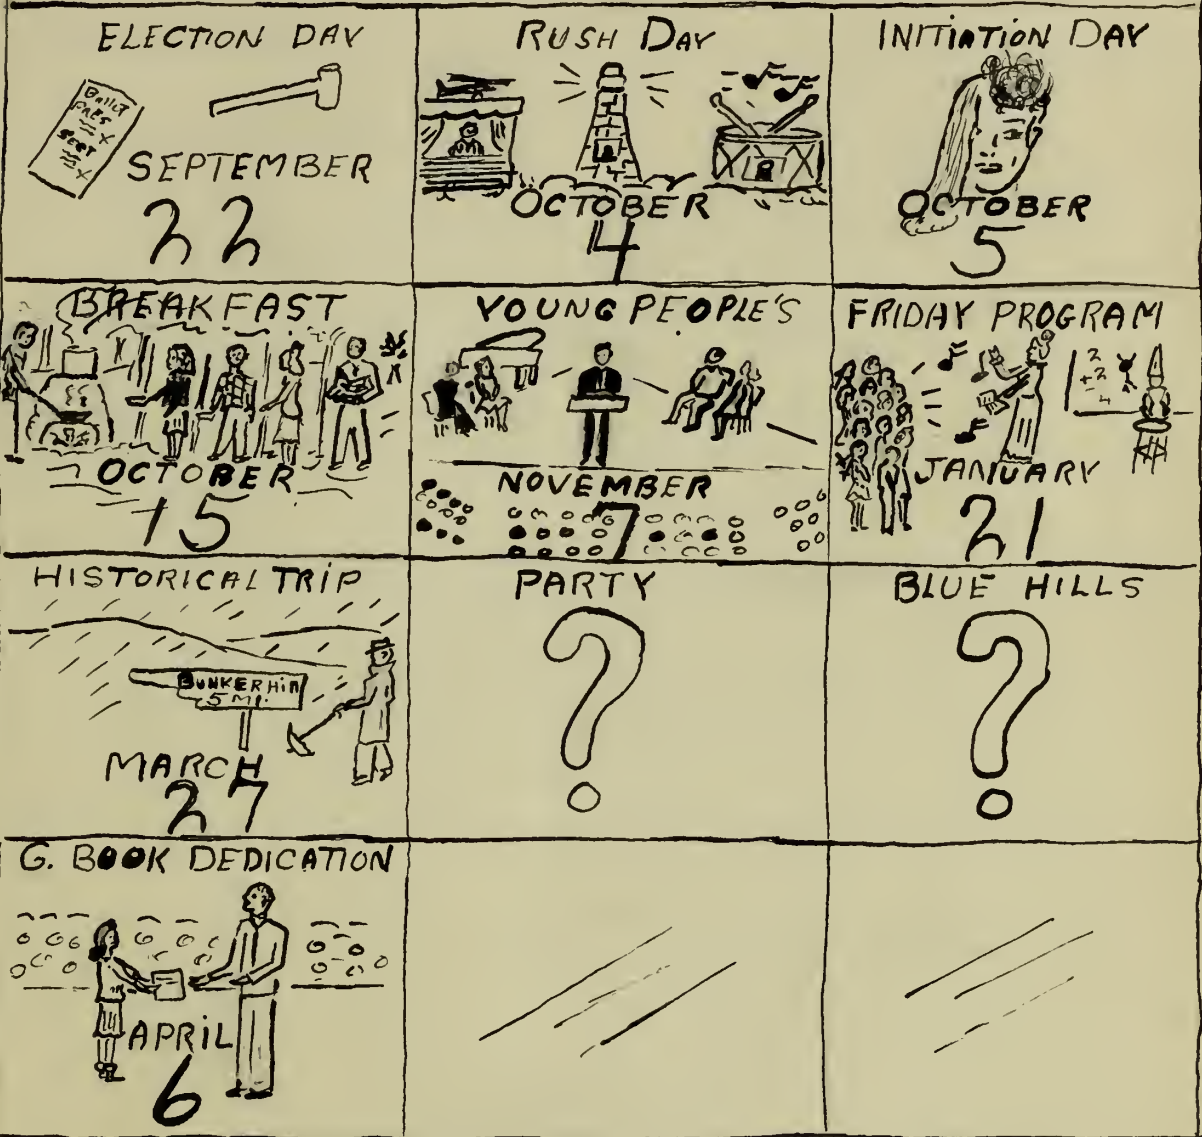 ELECTION DAY
BALLOT
PRES
X
SECT
X
SEPTEMBER
22
RUSH DAY
OCTOBER
4
INITIATION DAY
OCTOBER
5
BREAKFAST
OCTOBER
15
YOUNG PEOPLE'S
NOVEMBER
7
FRIDAY PROGRAM
2
+2
4
JANUARY
21
HISTORICAL TRIP
BUNKER Hill
5 MI.
MARCH
27
PARTY
?
BLUE HILLS
?
G. BOOK DEDICATION
APRIL
6